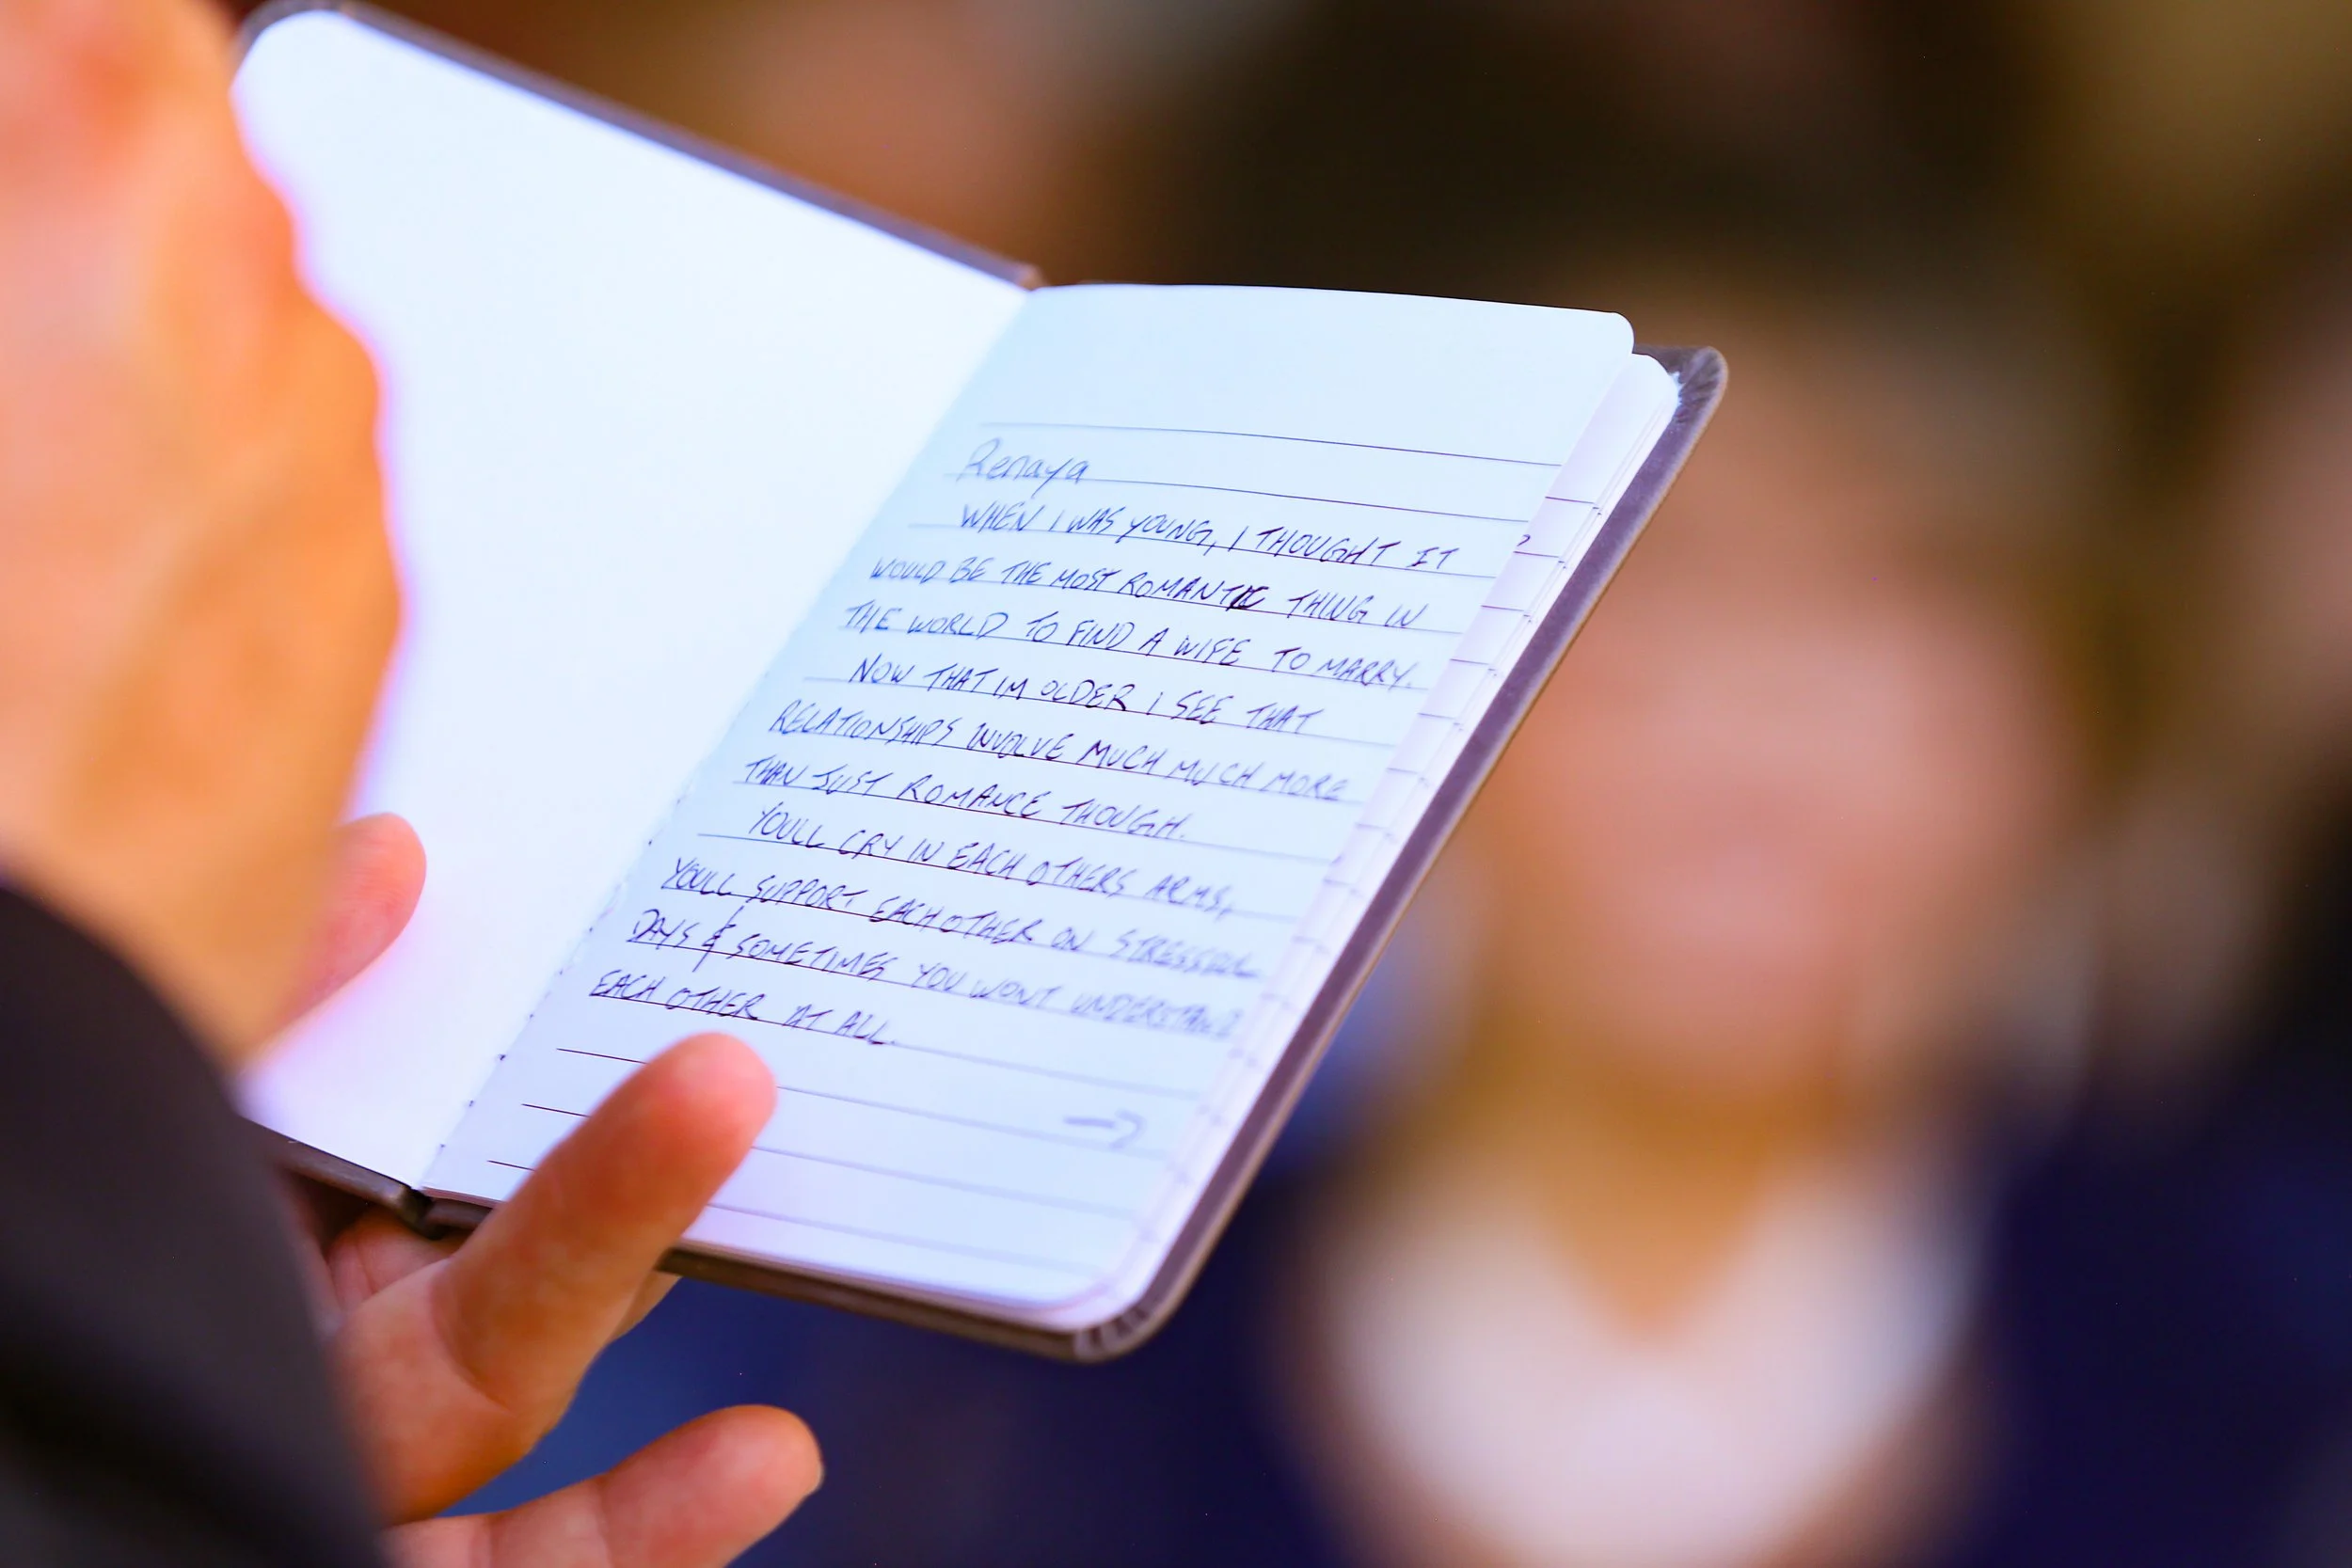 Renaya
WHEN I WAS YOUNG, I THOUGHT IT
WOULD BE THE MOST ROMANTIC THING IN
THE WORLD TO FIND A WIFE TO MARRY.
NOW THAT IM OLDER I SEE THAT
RELATIONSHIPS INVOLVE MUCH MUCH MORE
THAN JUST ROMANCE THOUGH.
YOULL CRY IN EACH OTHERS ARMS,
YOULL SUPPORT EACH OTHER ON STRESSFUL
DAYS & SOMETIMES YOU WONT UNDERSTAND
EACH OTHER AT ALL.
→